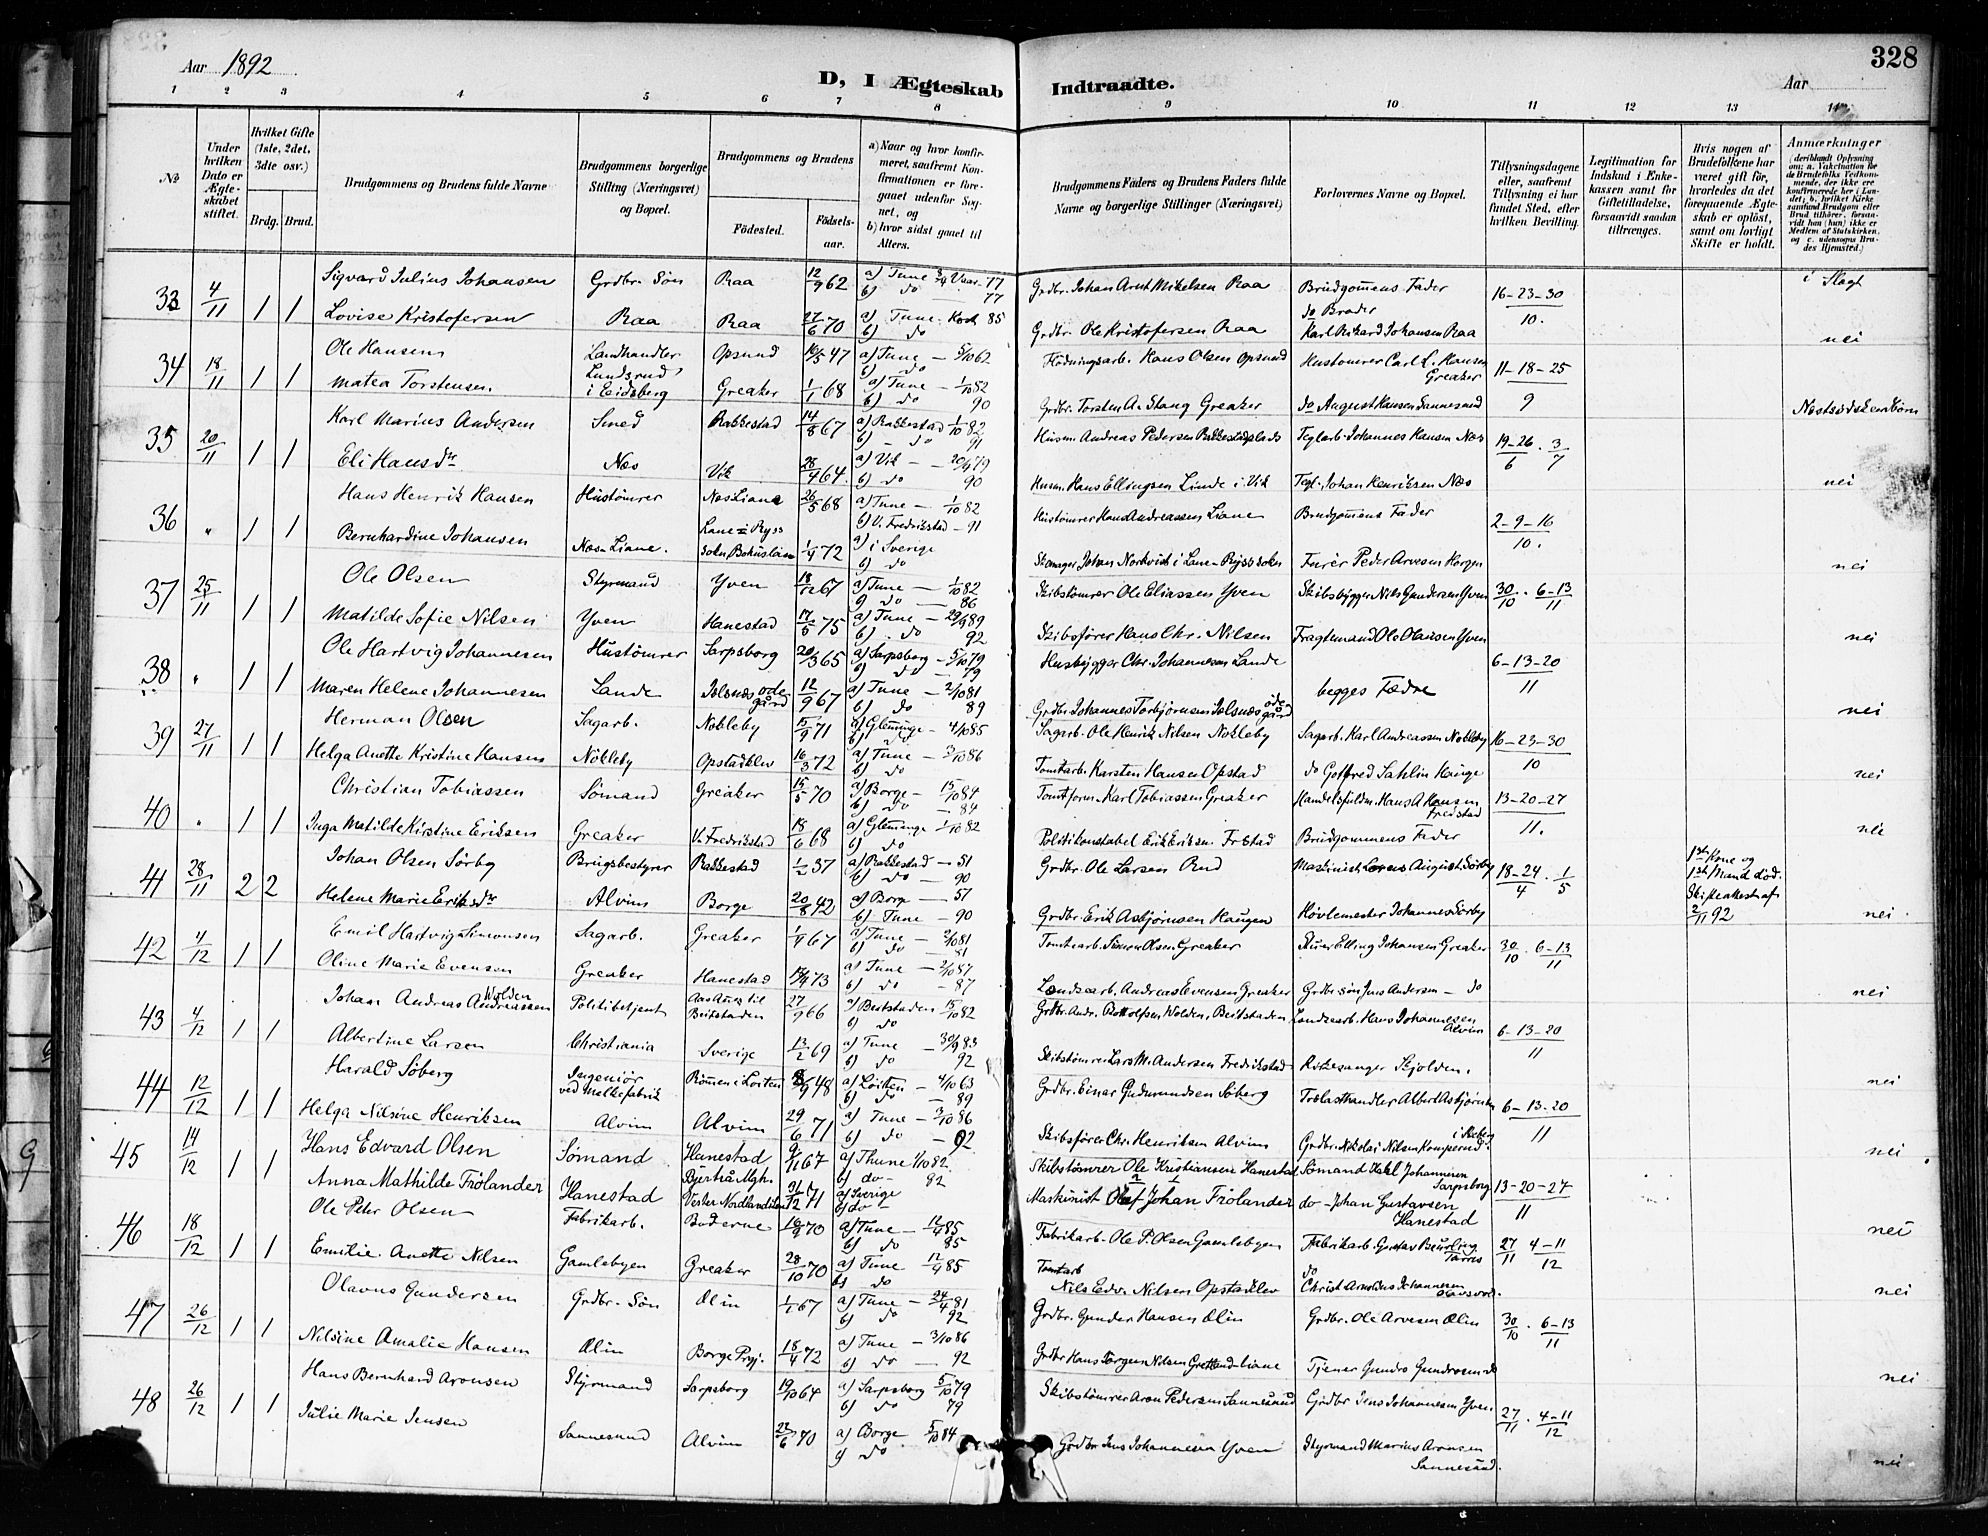 328
Aar 1892
D, I Ægteskab Indtraadte.
Aar
1 2 3 4 5 6 7 8 9 10 11 12 13 14
No
Under hvilken Dato er Ægteskabet stiftet.
Hvilket Gifte (1ste, 2det, 3dte osv.)
Brdg. Brud.
Brudgommens og Brudens fulde Navne
Brudgommens borgerlige Stilling (Næringsvei) og Bopæl.
Brudgommens og Brudens
Fødested. Fødselsaar.
a) Naar og hvor konfirmeret, saafremt Konfirmationen er foregaaet udenfor Sognet, og
b) hvor sidst gaaet til Alters.
Brudgommens Faders og Brudens Faders fulde Navne og borgerlige Stillinger (Næringsvei)
Forlovernes Navne og Bopæl.
Tillysningsdagene eller, saafremt Tillysning ei har fundet Sted, efter hvilken Bevilling.
Legitimation for Indskud i Enkekassen samt for Giftetilladelse, forsaavidt saadan tiltrænges.
Hvis nogen af Brudefolkene har været gift før, hvorledes da det foregaaende Ægteskab er opløst, samt om lovligt Skifte er holdt.
Anmærkninger
33 4/11 1 1 Sigvard Julius Johansen Grdbr. Søn Raa 12/9 62 a) Tune Vaar 77 b) do 77 Grdbr. Johan Arnt Mikelsen Raa Brudgommens Fader 16-23-30/10. i Slægt
Lovise Kristofersen Raa Raa 27/6 70 a) Tune 85 b) do Grdbr. Ole Kristofersen Raa do Broder Karl Rikard Johansen Raa nei
34 18/11 1 1 Ole Hansen Landhandler Lundsrud i Eidsberg Opsund 16/5 47 a) Tune - 5/10 62 b) do Flødningsarb. Hans Olsen Opsund Hustømrer Carl L. Hansen Greaker 11-18-25/9
Matea Torstensen. Greaker 1/1 68 a) Tune - 1/10 82 b) do 90 Grdbr. Torsten A. Stang Greaker do August Hansen Sannesund Næstsødskenbørn
35 20/11 1 1 Karl Marius Andersen Smed Rakkestad 14/8 67 a) Rakkestad 1/10 82 b) - do 91 Husm. Andreas Pedersen Teglarb. Johannes Hansen Næs 19-26/6 . 3/7
Eli Hansdr Næs Vik 28/4 64 a) Vik - 79 b) do 90 Husm. Hans Ellingsen Linde i Vik Tegl. Johan Henriksen Næs nei
36 " 1 1 Hans Henrik Hansen Hustømrer Næs Liane 26/5 68 a) Tune - 1/10 82 b) V. Fredrikstad - 91 Hustømrer Hans Andreassen Liane Brudgommens Fader 2-9-16/10.
Bernhardine Johansen Næs Liane. Lane = Ryss sokn, Bohuslän 1/4 72 a) i Sverige b) do Skomager Johan Norkvist i Lane - Ryss soken Furer Peder Arvesen Horgen nei
37 25/11 1 1 Ole Olsen Styrmand Yven 18/12 67 a) Tune - 1/10 82 b) do - 86 Skibstømrer Ole Eliassen Yven Skibsbygger Nils Gundersen Yven 30/10 . 6-13/11
Matilde Sofie Nilsen Yven Hanestad 17/5 75 a) Tune - 29/9 89 b) do 92 Skibsfører Hans Chr. Nilsen Fragtemand Ole Olausen Yven nei
38 " 1 1 Ole Hartvig Johannesen Hustømrer Sarpsborg 20/3 65 a) Sarpsborg - 5/10 79 b) do - 79 Husbygger Chr. Johannesen Lande begges Fædre 6-13-20/11
Maren Helene Johannesen Lande Jelsnæs ødegård 12/9 67 a) Tune - 2/10 81 b) do 89 Grdbr. Johannes Torbjørnsen Jelsnæs ødegård nei
39 27/11 1 1 Herman Olsen Sagarb. Nøkleby 15/9 71 a) Glemminge - 4/10 85 b) do Sagarb. Ole Henrik Nilsen Nøkleby Sagarb. Karl Andreassen Nøkleby 16-23-30/10
Helga Anette Kristine Hansen Nökleby Opstadklev 16/3 72 a) Tune - 3/10 86 b) do Tomtarb. Karsten Hansen Opstad do Gotfred Sahlin Hauge nei
40 " 1 1 Christian Tobiassen Sömand Greaker 15/5 70 a) Borge - 15/10 84 b) do - 84 Tomtform. Karl Tobiassen Greaker Handelsfuldm. Hans A. Hansen Fredstad 13-20-27/11.
Inga Matilde Kirstine Eriksen Greaker V. Fredrikstad 18/6 68 a) Glemminge 1/10 82 b) do Politikonstabel Erik Eriksen. Fr.stad Brudgommens Fader nei
41 28/11 2 2 Johan Olsen Sørby Brugsbestyrer Rakkestad 1/2 37 a) Rakkestad - 51 b) do - 90 Grdbr. Ole Larsen Rud Maskinist Lorens August Sørby 18-24/4 . 1/5 1ste Kone og 1ste Mand død.
Helene Marie Eriksdr Alvim Borge 20/8 42 a) Borge - 57 b) Tune - 90 Grdbr. Erik Asbjørnsen Haugen Høvlemester Johannes Sørby Skifteattest af 2/11 92 nei.
42 4/12 1 1 Emil Hartvig Simonsen Sagarb. Greaker 1/9 67 a) Tune - 2/10 81 b) do 81 Tomtearb. Simon Olsen Greaker Stuer Elling Johansen Greaker 30/10 . 6-13/11
Oline Marie Evensen Greaker Hanestad 73 a) Tune - 2/10 87 b) do - 87 Landsarb. Andreas Evensen Greaker Grdbr. søn Jens Andersen - do nei
43 4/12 1 1 Johan Andreas Andreassen Wolden Politibetjent Beitstaden 27/9 66 a) Beitstaden 15/10 82 b) do Grdbr. Andr. Rottolfsen Wolden, Beitstaden Landsearb. Hans Johannesen Alvim 6-13-20/11
Albertine Larsen Christiania Sverige 13/2 69 a) Tune - 30/9 83 b) do 92 Skibstømrer Lars M. Andersen Fredrikstad Kirkesanger Skjolden. nei
44 12/12 1 1 Harald Söberg Ingeniör ved Melkefabrik Rømen i Löiten 48 a) Löiten - 4/10 63 b) do - 89 Grdbr. Einar Gudmundsen Söberg Trælasthandler Albert Asbjørnsen 6-13-20/11
Helga Nilsine Henriksen Alvim Alvim 29/6 71 a) Tune - 3/10 86 b) do - 92 Skibsfører Chr. Henriksen Alvim Grdbr. Nikolai Nilsen Kamperud. nei
45 14/12 1 1 Hans Edvard Olsen Sømand Hanestad 67 a) Thune 1/10 82. b) do - 82 Skibstømrer Ole Kristiansen Hanestad Sømand Karl Johannesen Sarpsborg 13-20-27/11
Anna Mathilde Frölander Hanestad Bjertrå Mgh. Vester Nordlandslän 31/12 71 a) Sverige b) do - Maskinist Olof Johan Frölander do - Johan Gustavsen Hanestad nei
46 18/12 1 1 Ole Peter Olsen Fabrikarb. Boderne 16/9 70 a) Tune - 12/4 85 b) do 85 Fabrikarb. Ole P. Olsen Gamlebyen Fabrikarb. Gustav Torres 27/11 4-11/12
Emilie Anette Nilsen Gamlebyen Greaker 28/10 70 a) Tune 12/4 85 b) do Tomtarb Nils Edv. Nilsen Opstadklev do Christ. Johannesen nei
47 26/12 1 1 Olavus Gundersen Grdbr. Sön Ølin 1/1 67 a) Tune - 24/4 81 b) do 92 Grdbr. Gunder Hansen Ølin Grdbr. Ole Arvesen Ølin 30/10 . 6-13/11
Nilsine Amalie Hansen Ølin Borge Prgj. 18/4 72 a) Tune - 3/10 86 b) do - 92 Grdbr Hans Jørgen Nilsen Grettland-Liane Tjener Gunds Gundersen do nei
48 26/12 1 1 Hans Bernhard Aronsen Styrmand Sarpsborg 19/10 64 a) Sarpsborg 5/10 79 b) do 79 Skibstömrer Aron Pedersen Sannesund Grdbr Jens Johannesen Yven. 27/11 . 4-11/12
Julie Marie Jensen Sannesund Alvim 23/6 70 a) Borge 5/10 84 b) do Grdbr Jens Johannesen Yven Styrmand Marius Aronsen Sannesund. nei